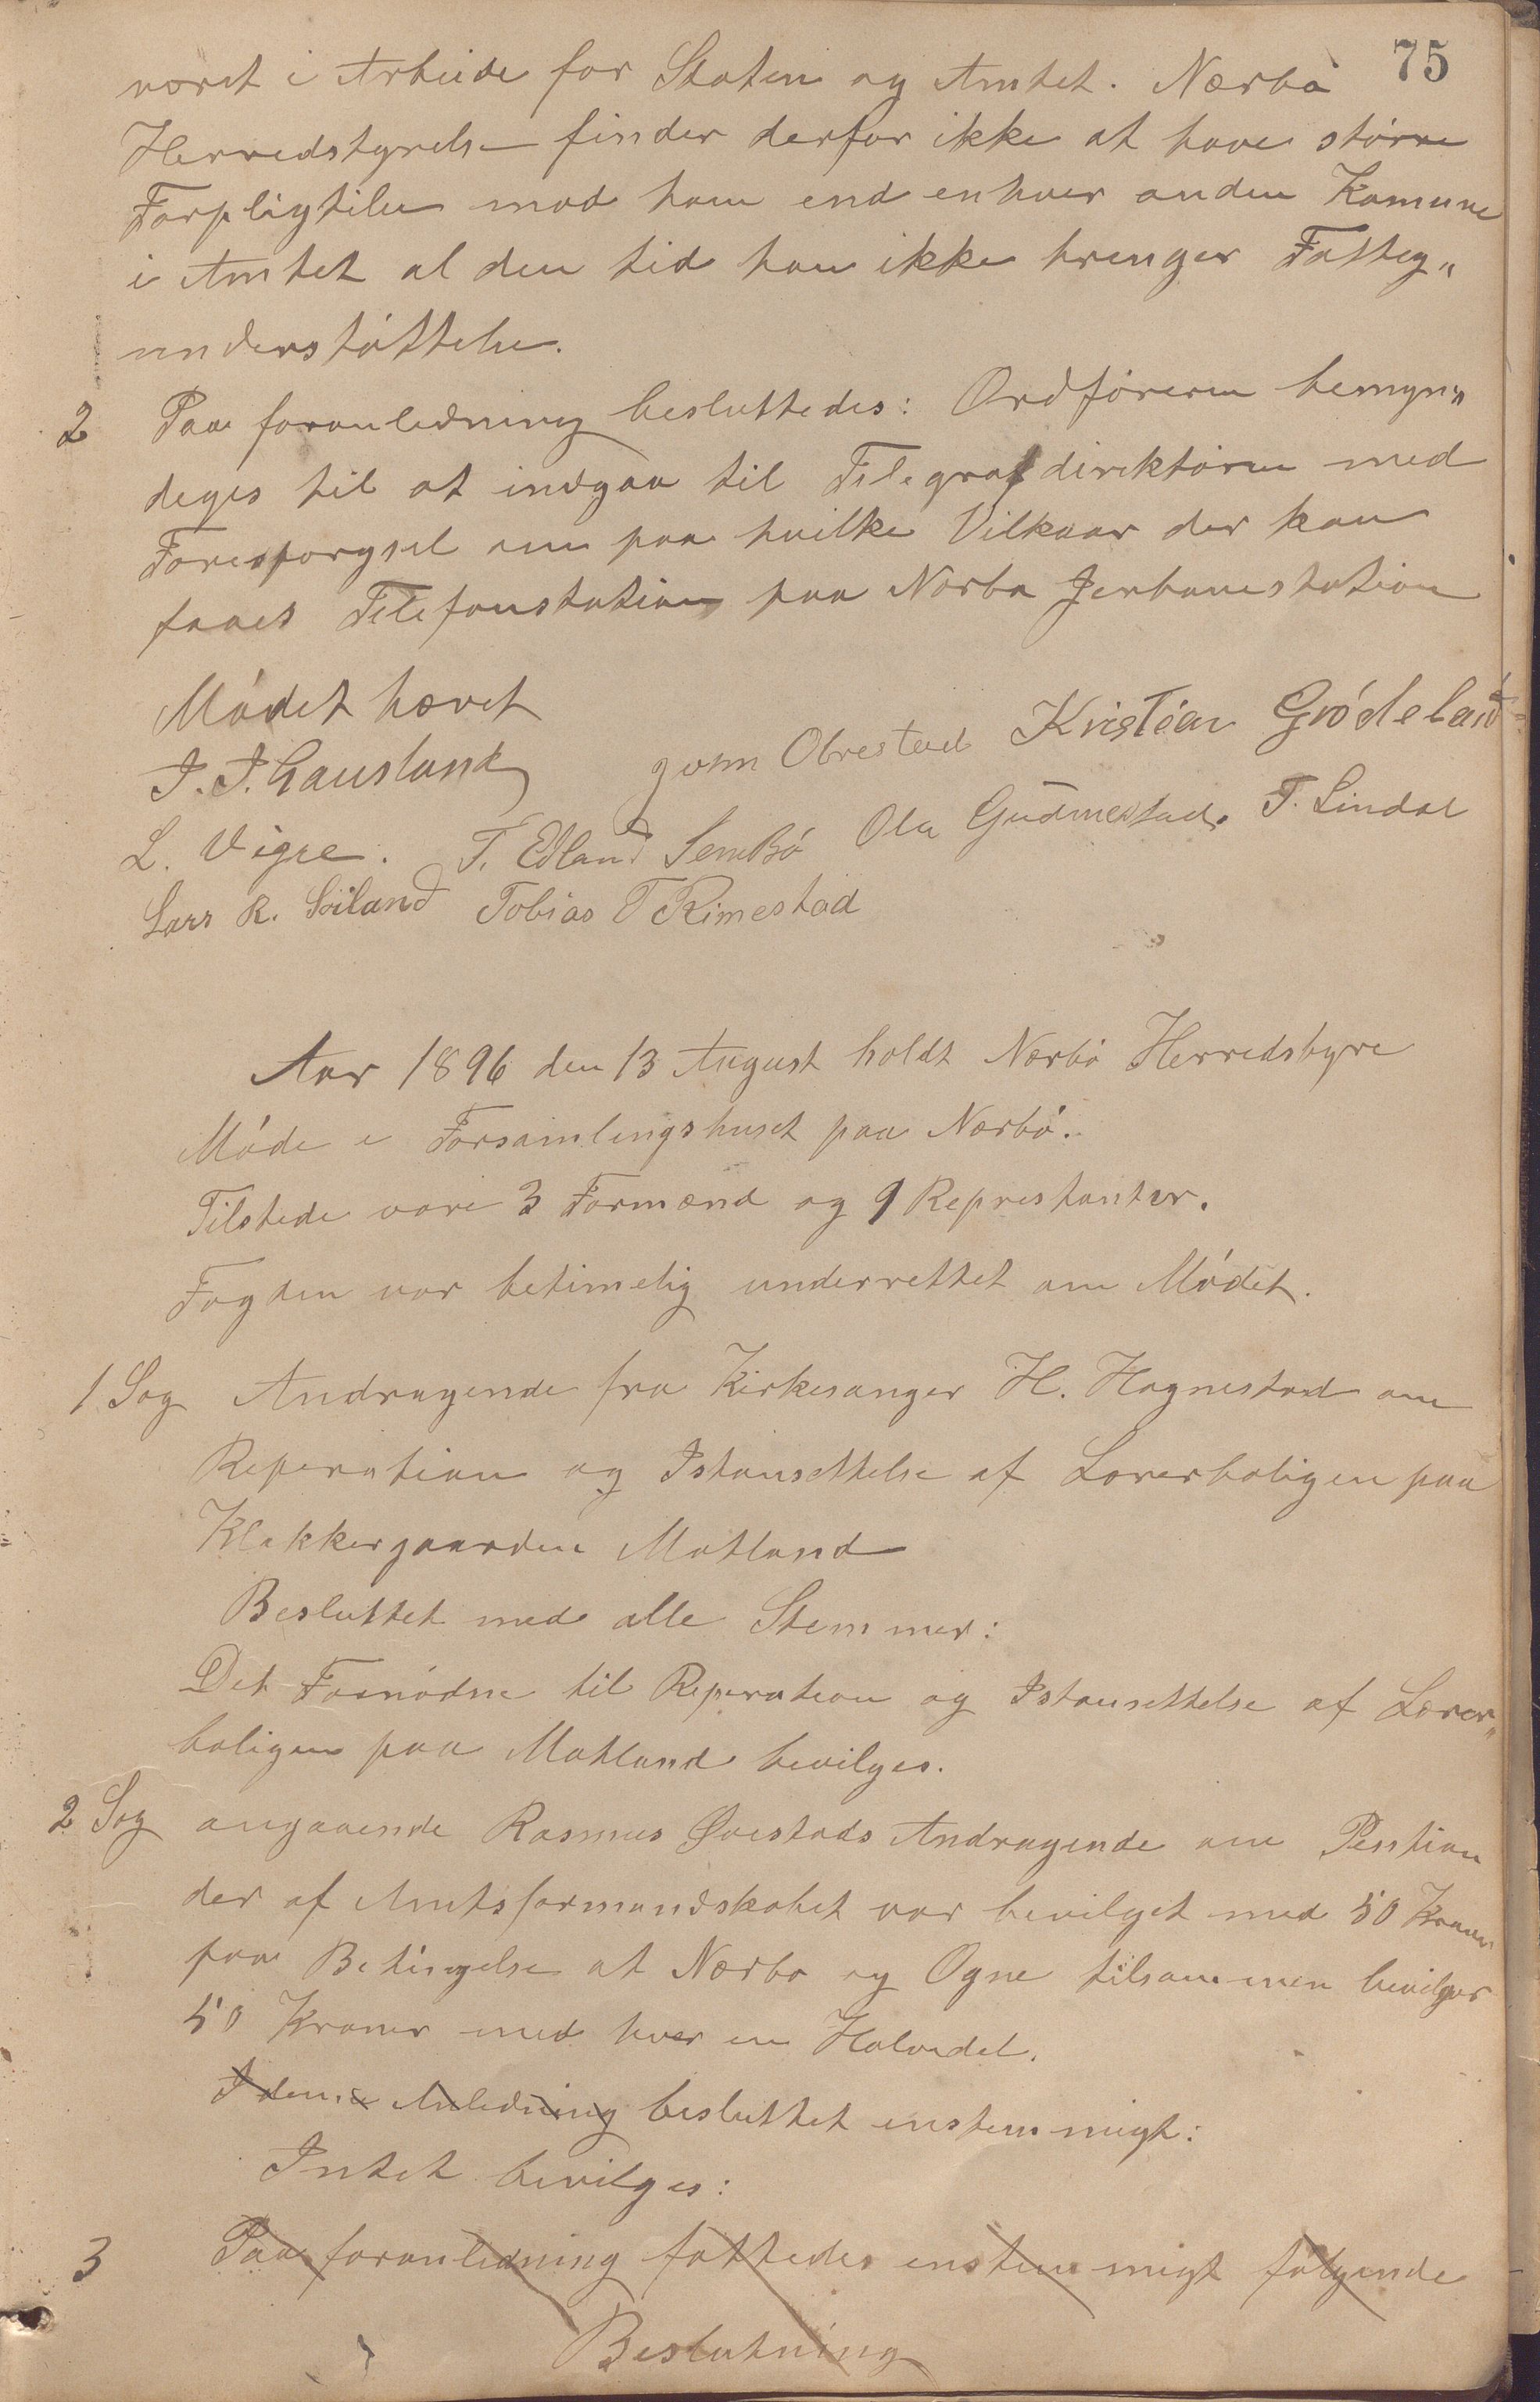 75
været i Arbeide for Staten og Amtet. Nærbø
Herredstyrelse finder derfor ikke at have større
Forpligtilse mod ham end enhver anden Komune
i Amtet al den tid han ikke trenger Fattig„
understøttelse.
2 Paa foranledning besluttedes: Ordføreren bemyn„
deges til at indgaa til Telegrafdirektøren med
Forespørgsel om paa hvilke Vilkaar der kan
faaes Telefonstation paa Nærbø Jernbanestation
Mødet hævet
J. J. Gausland Jonn Obrestad Kristian Grødeland
L. Vigre. T. Edland Sembø Ola Gudmestad. T. Lindal
Lars R. Søiland Tobias T Rimestad
Aar 1896 den 13 August holdt Nærbø Herredstyre
Møde i Forsamlingshuset paa Nærbø.
Tilstede vare 3 Formænd og 9 Represtanter.
Fogden var betimelig underrettet om Mødet.
1 Sag Andragende fra Kirkesanger H. Hognestad om
Reperation og Istansettelse af Lærerboligen paa
Klokkergaarden Motland
Besluttet med alle Stemmer:
Det Fornødne til Reperation og Istansettelse af Lærer„
boligen paa Motland bevilges.
2 Sag angaaende Rasmus Qvestads Andragende om Pention
der af Amtsformandskabet var bevilget med 50 Kroner
paa Betingelse at Nærbø og Ogne tilsammen bevilger
50 Kroner med hver en Halvdel.
I denne Anledning besluttet enstemmigt:
Intet bevilges:
3 Paa foranledning fattedes enstemmigt følgende
Beslutning